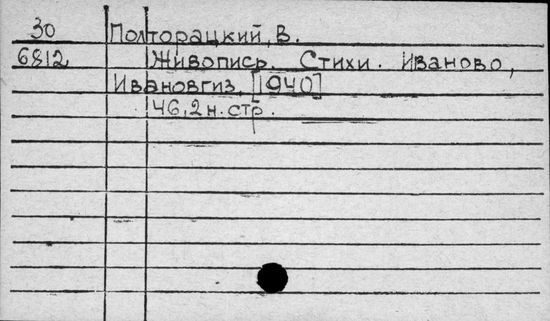 30 Полторацкий, В.
6812 Живопись. Стихи. Иваново,
Ивановгиз, [1940]
46, 2 н. стр.